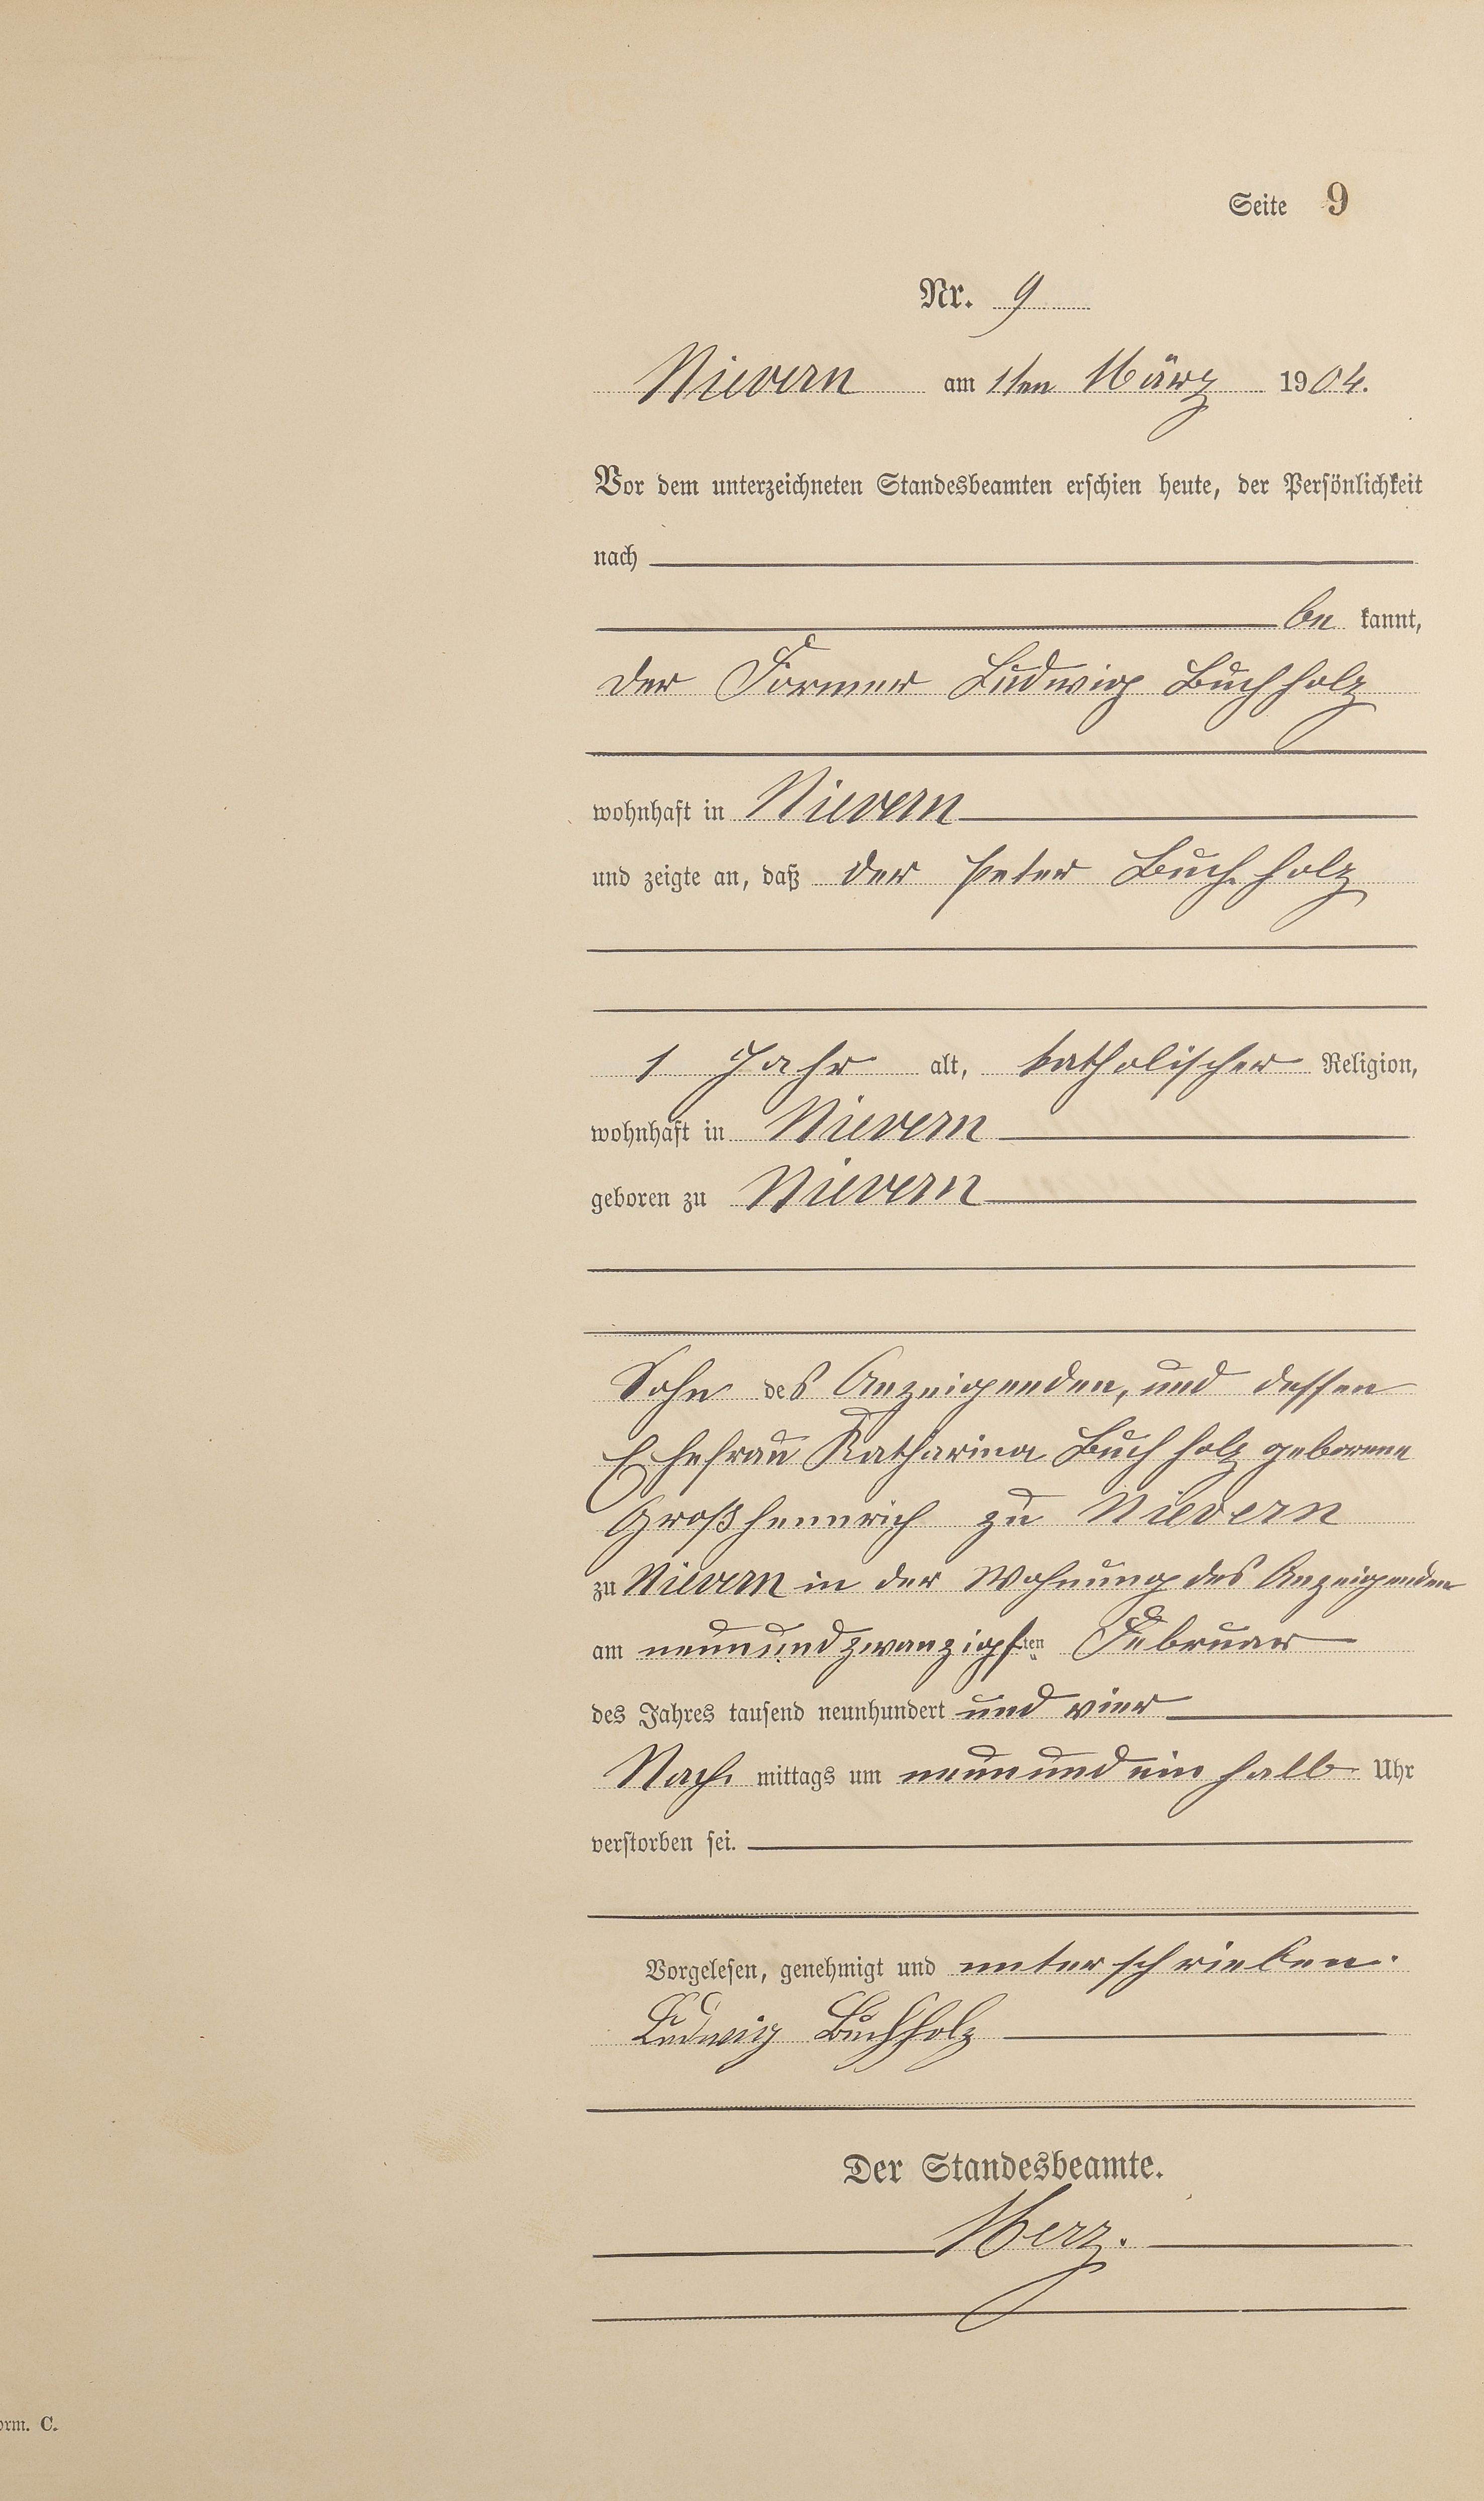 Seite 9
Nr. 9
Nievern am 1ten März 1904.
Vor dem unterzeichneten Standesbeamten erschien heute, der Persönlichkeit
nach
be kannt,
der Former Ludwig Buchholz
wohnhaft in Nievern
und zeigte an, daß der Peter Buchholz
1 Jahr alt, katholischer Religion,
wohnhaft in Nievern
geboren zu Nievern
Sohn des Anzeigenden, und dessen
Ehefrau Katharina Buchholz geborene
Großhennrich zu Nievern
zu Nievern in der Wohnung des Anzeigenden
am neunundzwanzigsten Februar
des Jahres tausend neunhundert und vier
Nach mittags um neunundein halb Uhr
verstorben sei.
Vorgelesen, genehmigt und unterschrieben.
Ludwig Buchholz
Der Standesbeamte.
Merz.
orm. C.